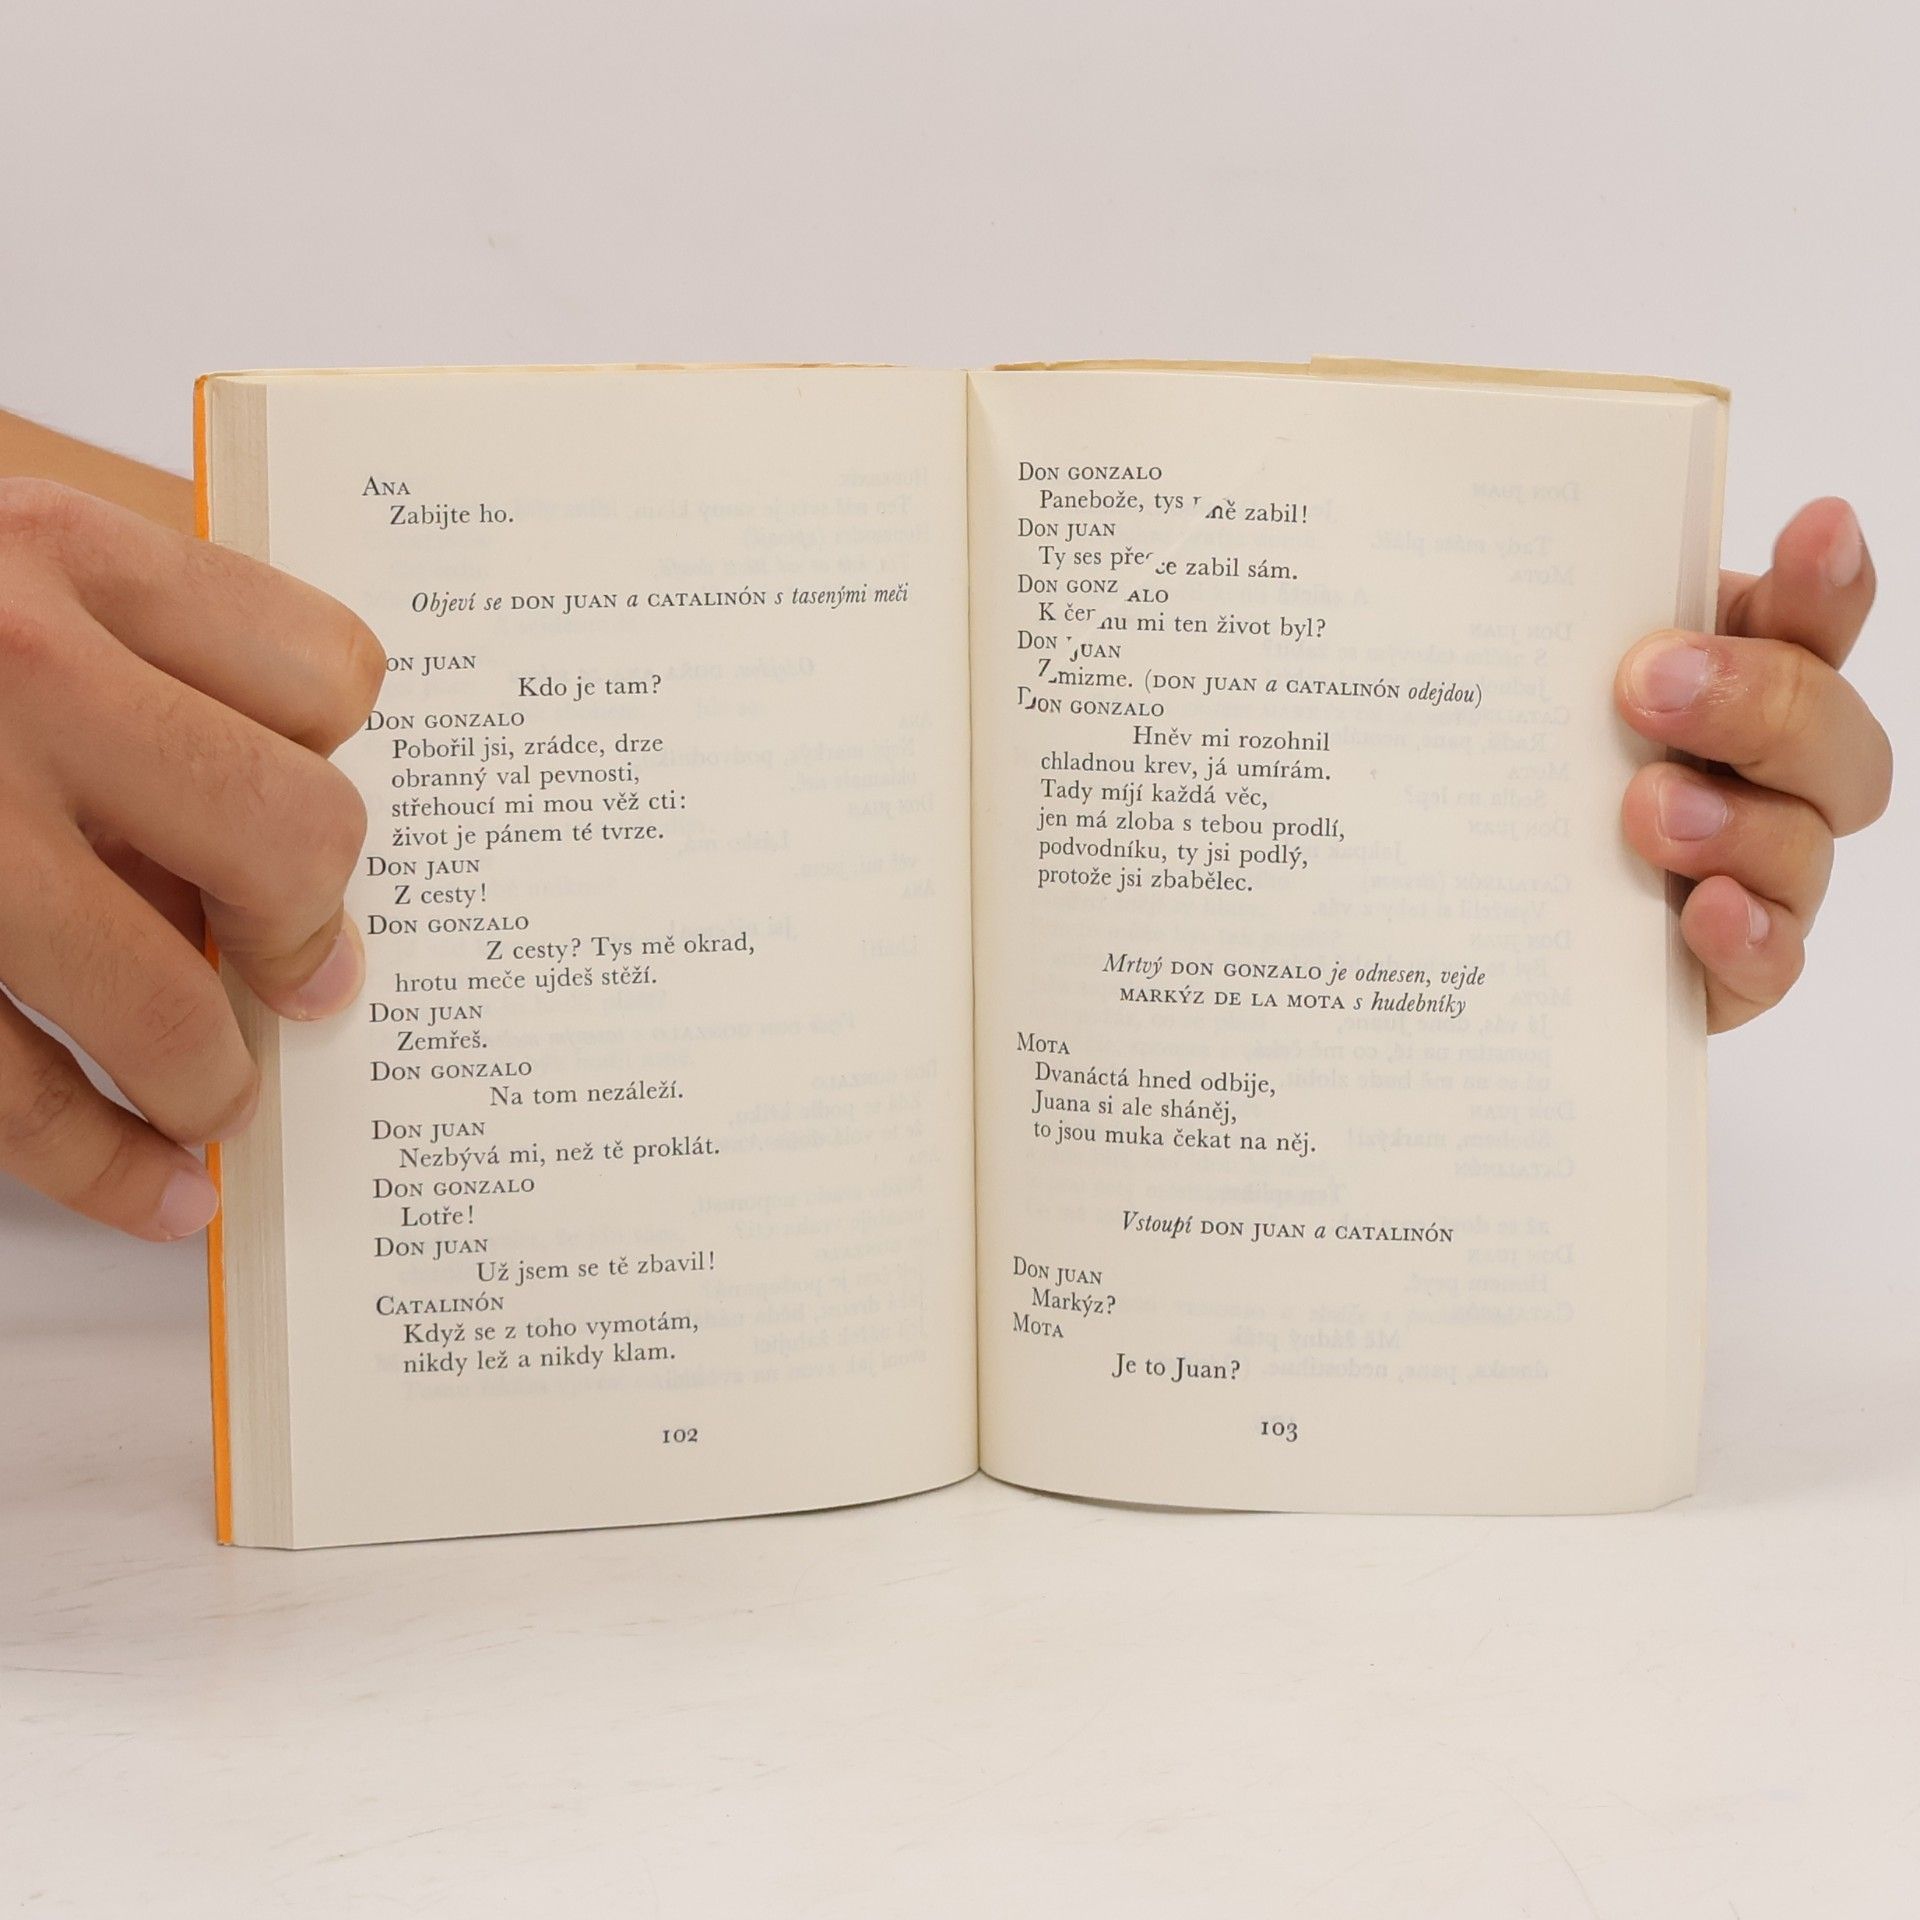 ANA
Zabijte ho.
Objeví se DON JUAN a CATALINÓN s tasenými meči
DON JUAN
Kdo je tam?
DON GONZALO
Pobořil jsi, zrádce, drze
obranný val pevnosti,
střehoucí mi mou věž cti:
život je pánem té tvrze.
DON JAUN
Z cesty!
DON GONZALO
Z cesty? Tys mě okrad,
hrotu meče ujdeš stěží.
DON JUAN
Zemřeš.
DON GONZALO
Na tom nezáleží.
DON JUAN
Nezbývá mi, než tě proklát.
DON GONZALO
Lotře!
DON JUAN
Už jsem se tě zbavil!
CATALINÓN
Když se z toho vymotám,
nikdy lež a nikdy klam.
102
DON GONZALO
Panebože, tys mě zabil!
DON JUAN
Ty ses přece zabil sám.
DON GONZALO
K čemu mi ten život byl?
DON JUAN
Zmizme. (DON JUAN a CATALINÓN odejdou)
DON GONZALO
Hněv mi rozohnil
chladnou krev, já umírám.
Tady míjí každá věc,
jen má zloba s tebou prodlí,
podvodníku, ty jsi podlý,
protože jsi zbabělec.
Mrtvý DON GONZALO je odnesen, vejde
MARKÝZ DE LA MOTA s hudebníky
MOTA
Dvanáctá hned odbije,
Juana si ale sháněj,
to jsou muka čekat na něj.
Vstoupí DON JUAN a CATALINÓN
DON JUAN
Markýz?
MOTA
Je to Juan?
103